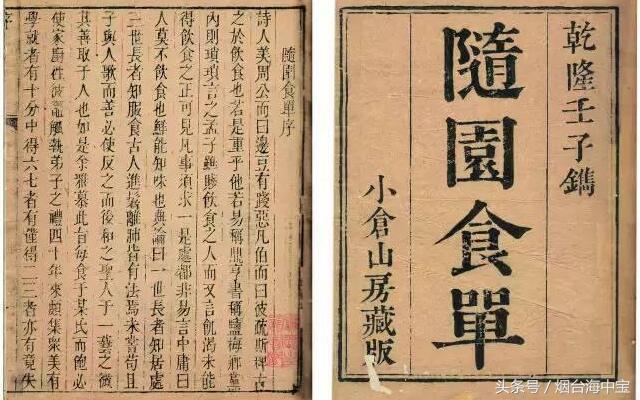 乾隆壬子鐫
隨園食單
小倉山房藏版
隨園食單序
詩人美周公而曰籩豆有踐惡凡伯而曰彼疏斯稗古
之於飲食也若是重乎他若易稱鼎亨書稱鹽梅鄉黨
內則瑣瑣言之孟子雖賤飲食之人而又言飢渴未能
得飲食之正可見凡事須求一是處都非易言中庸曰
人莫不飲食也鮮能知味也典論曰一世長者知居處
三世長者知服食古人進鬐離肺皆有法焉未嘗苟且
子與人歌而善必使反之而後和之聖人于一藝之微
其善取于人也如是余雅慕此旨每食于某氏而飽必
使家廚往彼竈觚執弟子之禮四十年來頗集眾美有
學就者有十分中得六七者有僅得二三者亦有竟失
头条号/烟台海中宝